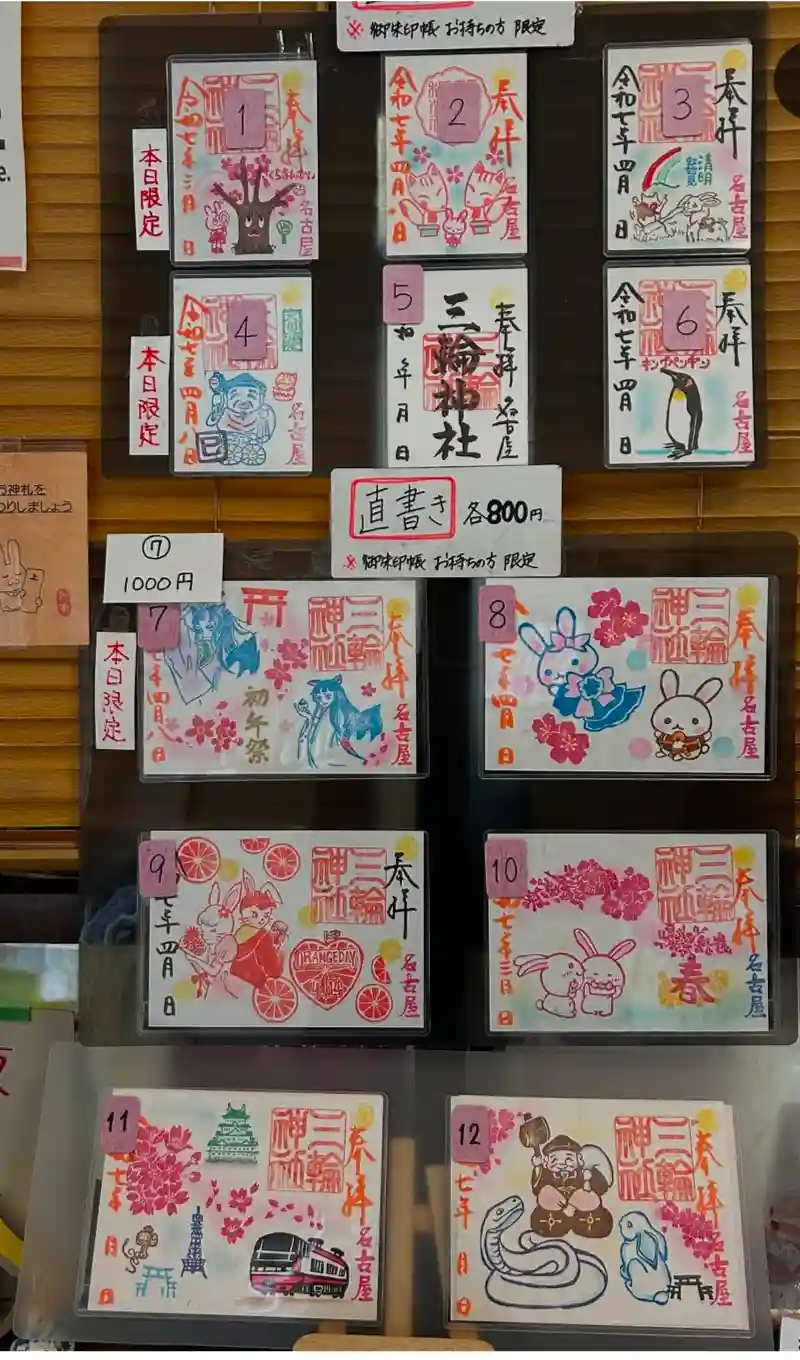 ※ 御朱印帳 お持ちの方 限定
本日限定
1
奉拝
令和七年三月 日
名古屋
2
奉拝
令和七年四月八日
名古屋
3
奉拝
令和七年四月 日
清明
名古屋
本日限定
4
令和七年四月八日
巳
名古屋
5
奉拝
三輪神社
和 年 月 日
名古屋
6
奉拝
令和七年四月 日
キングペンギン
名古屋
直書き 各800円
※ 御朱印帳 お持ちの方 限定
⑦
1000円
本日限定
7
奉拝
三輪神社
初午祭
年四月八日
名古屋
8
奉拝
三輪神社
七年四月 日
名古屋
9
奉拝
三輪神社
七年四月 日
ORANGEDAY
名古屋
10
奉拝
三輪神社
春
七年三月 日
名古屋
11
奉拝
三輪神社
七年 月 日
名古屋
12
奉拝
三輪神社
七年 月 日
名古屋